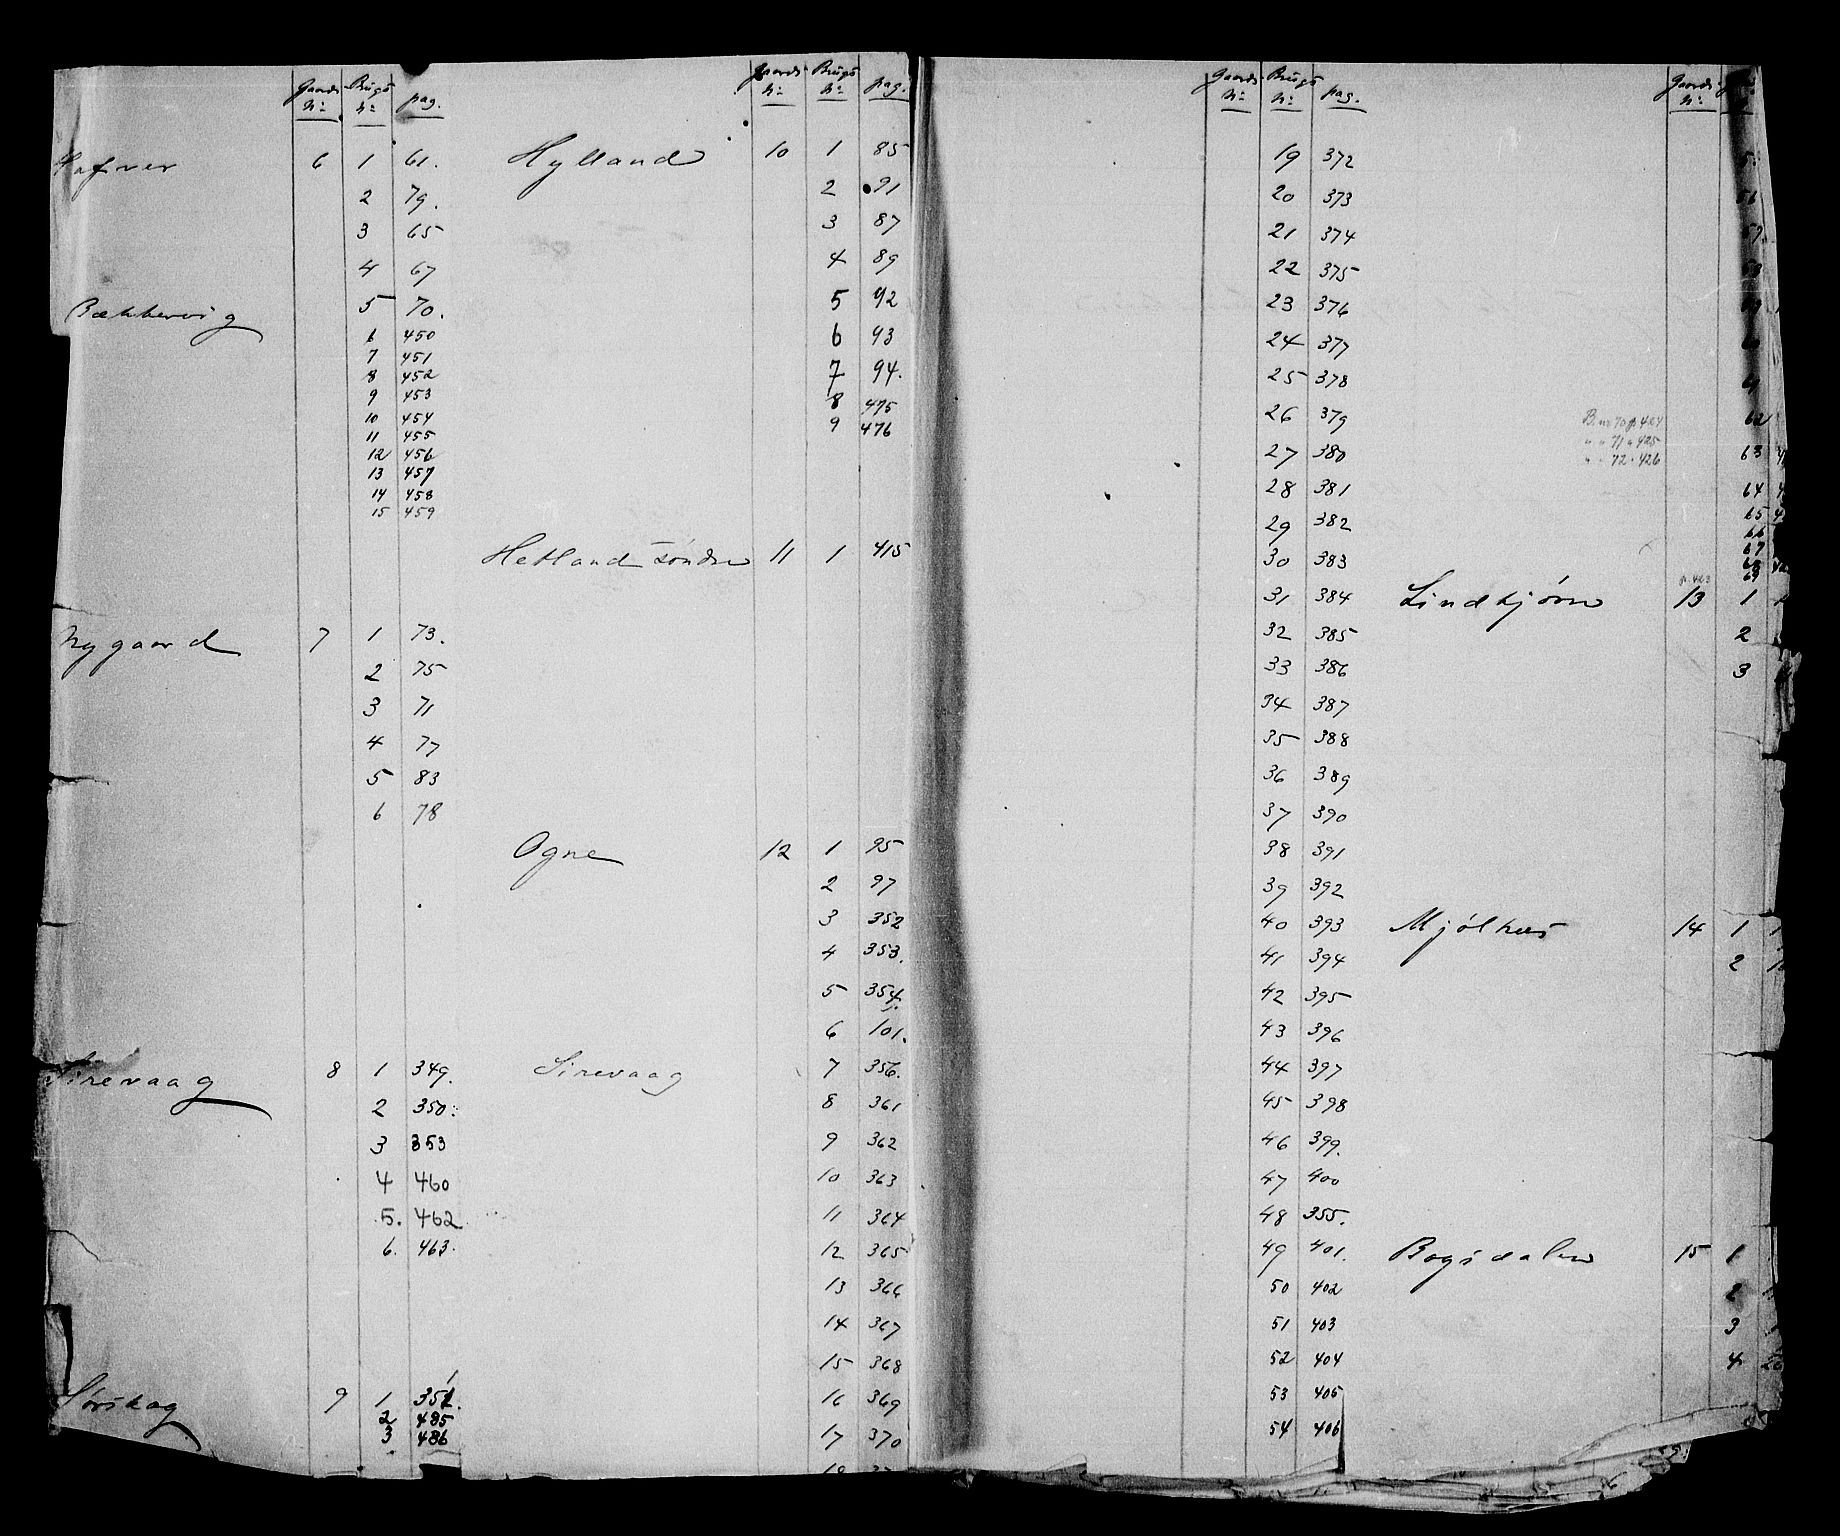 Gaards Nº Brugs Nº pag.
Hafver 6 1 61.
2 79.
3 65
4 67
Bækkevig 5 70.
6 450
7 451
8 452
9 453
10 454
11 455
12 456
13 457
14 458
15 459
Nygaard 7 1 73.
2 75
3 71
4 77
5 83
6 78
Sirevaag 8 1 349.
2 350.
3 353
4 460
5. 462
6. 463.
Sørskog 9 1 351.
2 485
3 486
Gaards Nº Brugs Nº pag.
Hylland 10 1 85
2 91
3 87
4 89
5 92
6 93
7 94.
8 475
9 476
Hetland søndre 11 1 415
Ogne 12 1 95
2 97
3 352
4 353.
5 354.
6 101.
Sirevaag 7 356.
8 361
9 362
10 363
11 364
12 365
13 366
14 367
15 368
16 369
17 370
Gaards Nº Brugs Nº pag.
19 372
20 373
21 374
22 375
23 376
24 377
25 378
26 379
27 380
28 381
29 382
30 383
31 384
32 385
33 386
34 387
35 388
36 389
37 390
38 391
39 392
40 393
41 394
42 395
43 396
44 397
45 398
46 399.
47 400
48 355.
49 401.
50 402
51 403
52 404
53 405
54 406
Gaards Nº
56
57
58
62
B. no 70 p 424
" " 71 " 425
" " 72 " 426
63
64
65
66
67
68
69
p. 423
Lindtjørn 13 1
2
3
Mjølhus 14 1
2
Bogsdalen 15 1
2
3
4